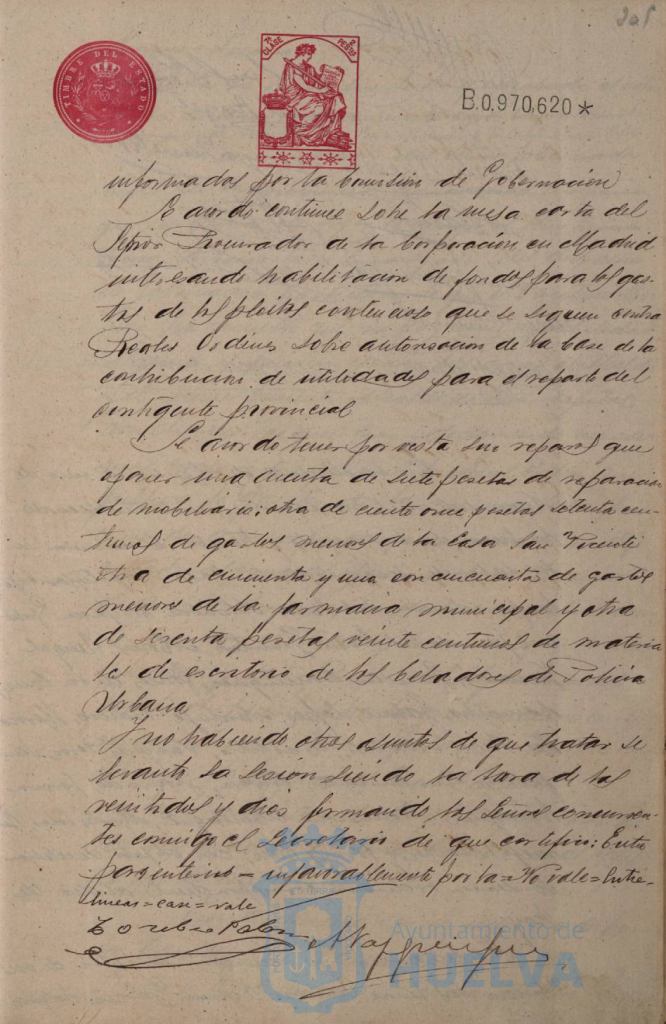 205
TIMBRE DEL ESTADO
7ª CLASE 2 PESTAS
B.0.970,620*
informadas por la Comisión de Gobernación
Se acordó continúe sobre la mesa carta del
Procurador de la Corporación en Madrid
interesando habilitación de fondos para los gas-
tos de los pleitos contencioso que se siguen contra
Reales Ordenes sobre autorisación de la base de la
contribución de utilidades para el reparto del
contigente provincial
Se acordó tener por vista sin reparos que
oponer una cuenta de siete pesetas de reparación
de mobiliario; otra de ciento once pesetas setenta cen-
timos de gastos menores de la Casa San Vicente
otra de cincuenta y una con cincuenta de gastos
menores de la farmacia municipal y otra
de sesenta pesetas veinte centimos de materia
les de escritorio de los celadores de Policia
Urbana
Y no habiendo otros asuntos de que tratar se
levantó la sesión siendo la hora de las
veintidos y dies firmando los Señores concurren-
tes conmigo el Secretario de que certifico: Entre
parentesis = infavorablemente por la = No vale = Entre-
lineas = casi = vale
Ayuntamiento de
HUELVA